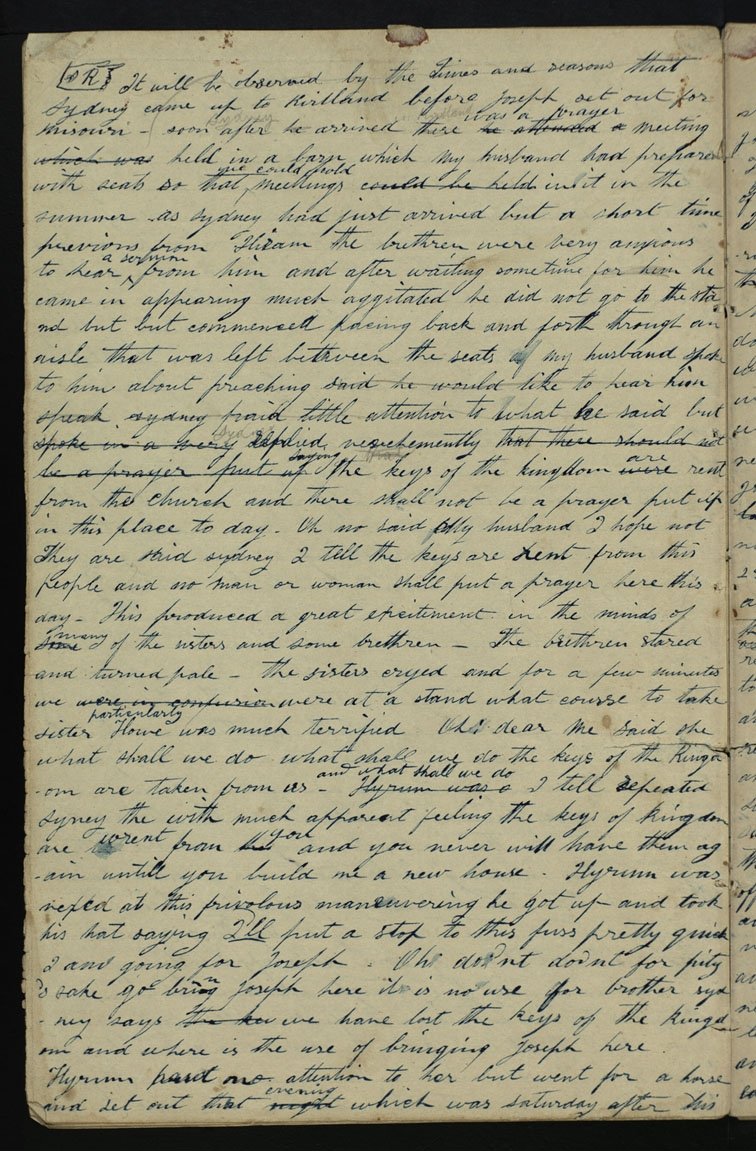 It will be observed by the times and seasons that
Sydney came up to Kirtland before Joseph set out for
Missouri - soon after he arrived there was a prayer he attended a meeting
which was held in a barn which my husband had prepared
with seats so that we could hold meetings could be held in it in the
summer - as sydney had just arrived but a short time
previous from Hiram the brethren were very anxious
to hear a sermon from him and after waiting sometime for him he
came in appearing much aggitated he did not go to the sta
nd but but commenced pacing back and forth through an
aisle that was left bettween the seats my husband spoke
to him about preaching said he would like to hear him
speak sydney paid little attention to what he said but
spoke in a very replied vehemently that there should not
be a prayer put up saying the keys of the kingdom are were rent
from the Church and there shall not be a prayer put up
in this place to day - Oh no said My husband I hope not
They are said sydney I tell the keys are rent from this
people and no man or woman shall put a prayer here this
day - This produced a great excitement in the minds of
many some of the sisters and some brethren - The brethren stared
and turned pale - the sisters cryed and for a few minutes
we were in confusion were at a stand what course to take
sister Howe particularly was much terrified Oh dear me said she
what shall we do what shall we do the keys of the Kingd
-om are taken from us - and what shall we do Hyrum was a I tell repeated
syney the with much apparent feeling the keys of kingdom
are wrent from you and you never will have them ag
-ain untill you build me a new house - Hyrum was
vexed at this frivolous maneuvering he got up and took
his hat saying I'll put a stop to this fuss pretty quick
I am going for Joseph - Oh do'nt do'nt for pity
's sake go bring Joseph here it is no use for brother syd
-ney says we have lost the keys of the kingd
om and where is the use of bringing Joseph here
Hyrum paid no attention to her but went for a horse
and set out that evening night which was saturday after this